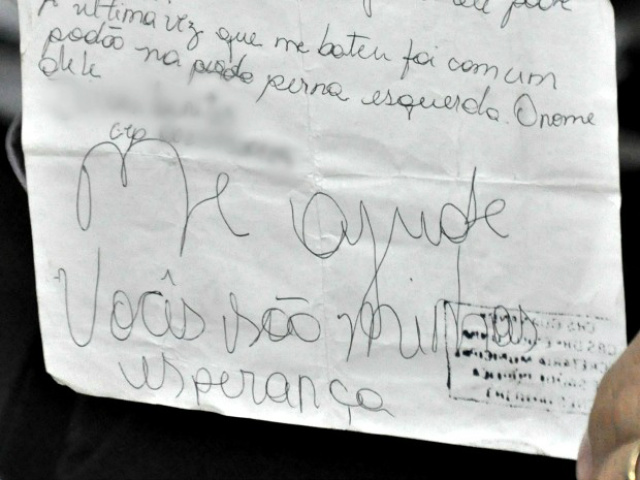 A última vez que me bateu foi com um
podão na perna esquerda. O nome
dele
Me ajude
Vocês são minhas
esperança